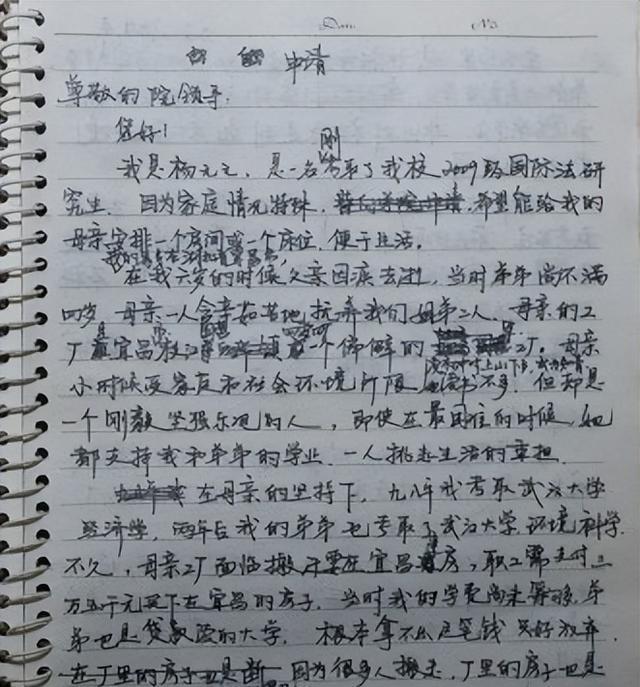 Date No.
申请
尊敬的院领导:
您好! 刚
我是杨元元,是一名考取了我校2009级国际法研
究生。因为家庭情况特殊,希望能给我的
母亲安排一个房间或一个床位,便于生活。
在我六岁的时候,父亲因病去逝,当时弟弟尚不满
四岁。母亲一人含辛茹苦地抚养我们姐弟二人。母亲的工
厂是宜昌枝江一个偏僻的工厂。母亲
小时候受家庭和社会环境所限,读书不多。但却是
一个刚毅坚强乐观的人,即使在最困难的时候,她
都支持我和弟弟的学业。一人挑起生活的重担。
在母亲的坚持下,九八年我考取武汉大学
经济学,两年后我的弟弟也考取了武汉大学环境科学。
不久,母亲工厂面临搬厂要在宜昌房,职工需支付三
万五千元买下在宜昌的房子。当时我的学费尚未筹够,弟
弟也是贷款读的大学。根本拿不出这笔钱只好放弃。
在厂里的房子也是 因为很多人搬走,厂里的房子也是